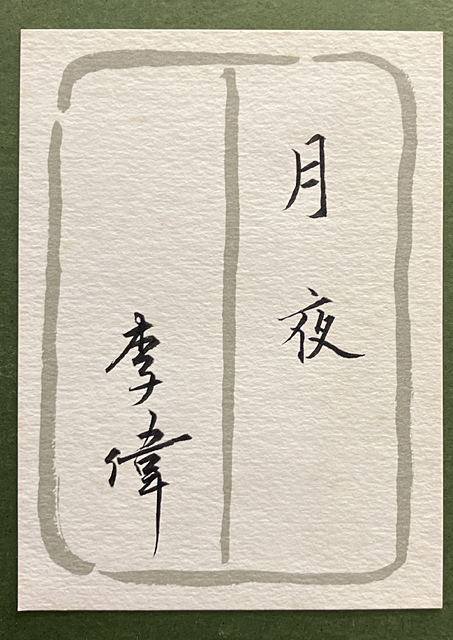 月夜
李偉